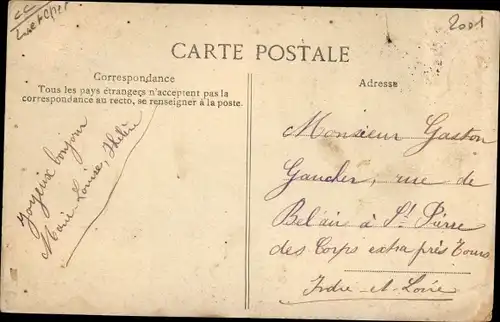 2001
CARTE POSTALE
Correspondance
Tous les pays étrangers n'acceptent pas la
correspondance au recto, se renseigner à la poste.
Adresse
Joyeux bonjour
Marie Louise,
Monsieur Gaston
Gaucher, rue de
Bel air à St Pierre
des Corps extra près Tours
Indre-et-Loire